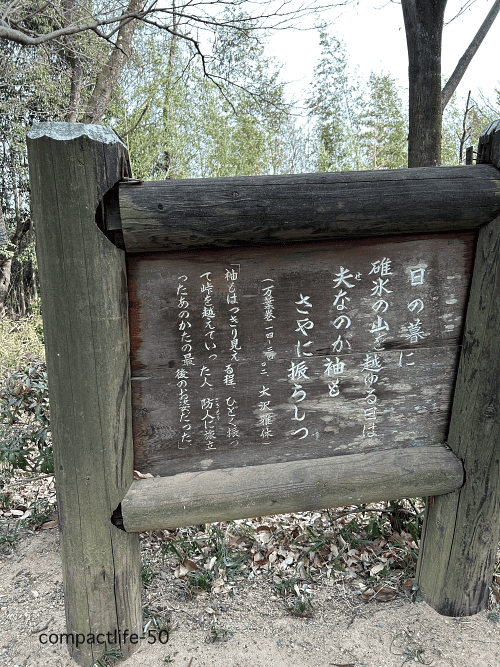 日の暮に
碓氷の山を越ゆる日は
夫なのが袖も
せ
さやに振らしつ
(万葉巻一四-三四〇二 大沢雅休)
「袖もはっきり見える程、ひどく振っ
て峠を越えていった人、防人に旅立
さきもり
ったあのかたの最後のお姿だった」
compactlife-50